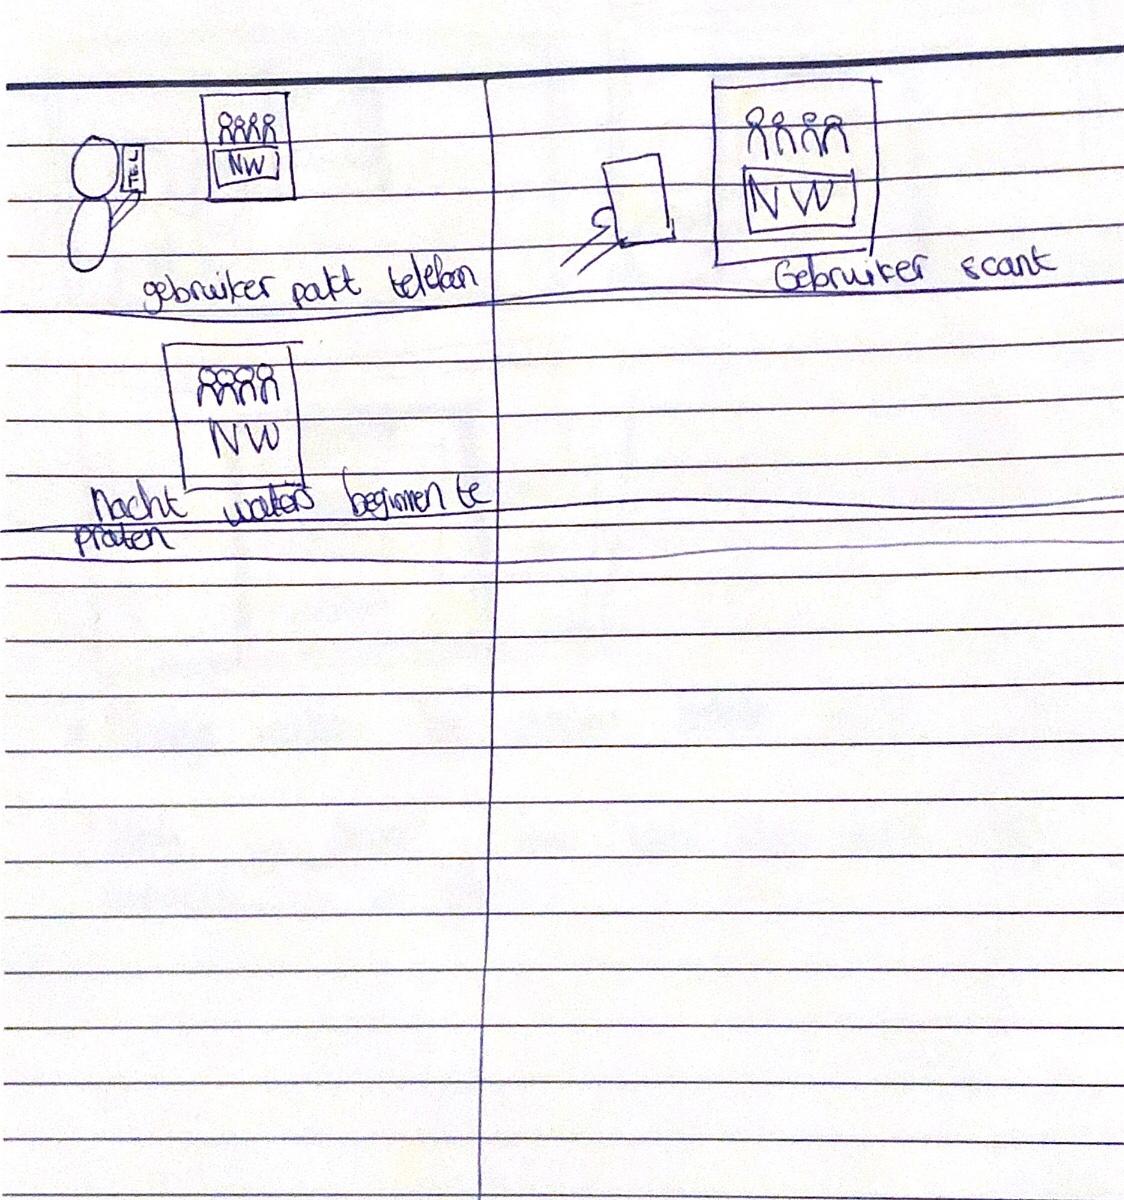 TEL
NW
gebruiker pakt telefon
NW
Gebruiker scant
NW
Nacht waters beginnen te
praten